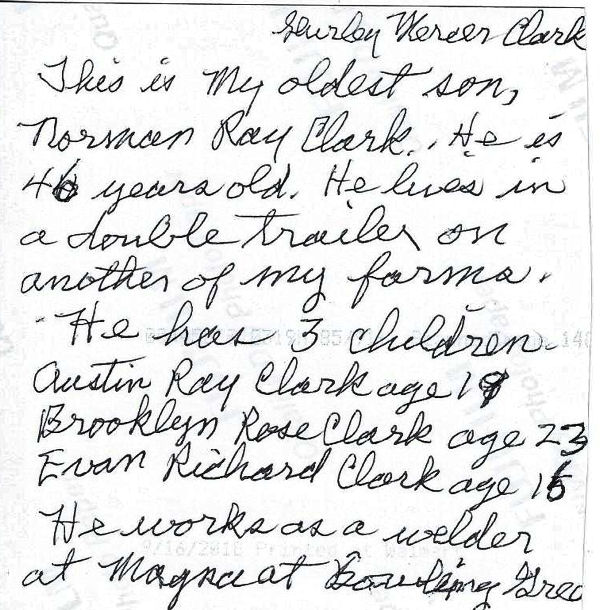 Mercer Clark
This is my oldest son,
Norman Ray Clark. He is
46 years old. He lives in
a double trailer on
another of my farms.
He has 3 children.
Austin Ray Clark age 19
Brooklyn Rose Clark age 23
Evan Richard Clark age 15
He works as a welder
at Magna at Bowling Gree